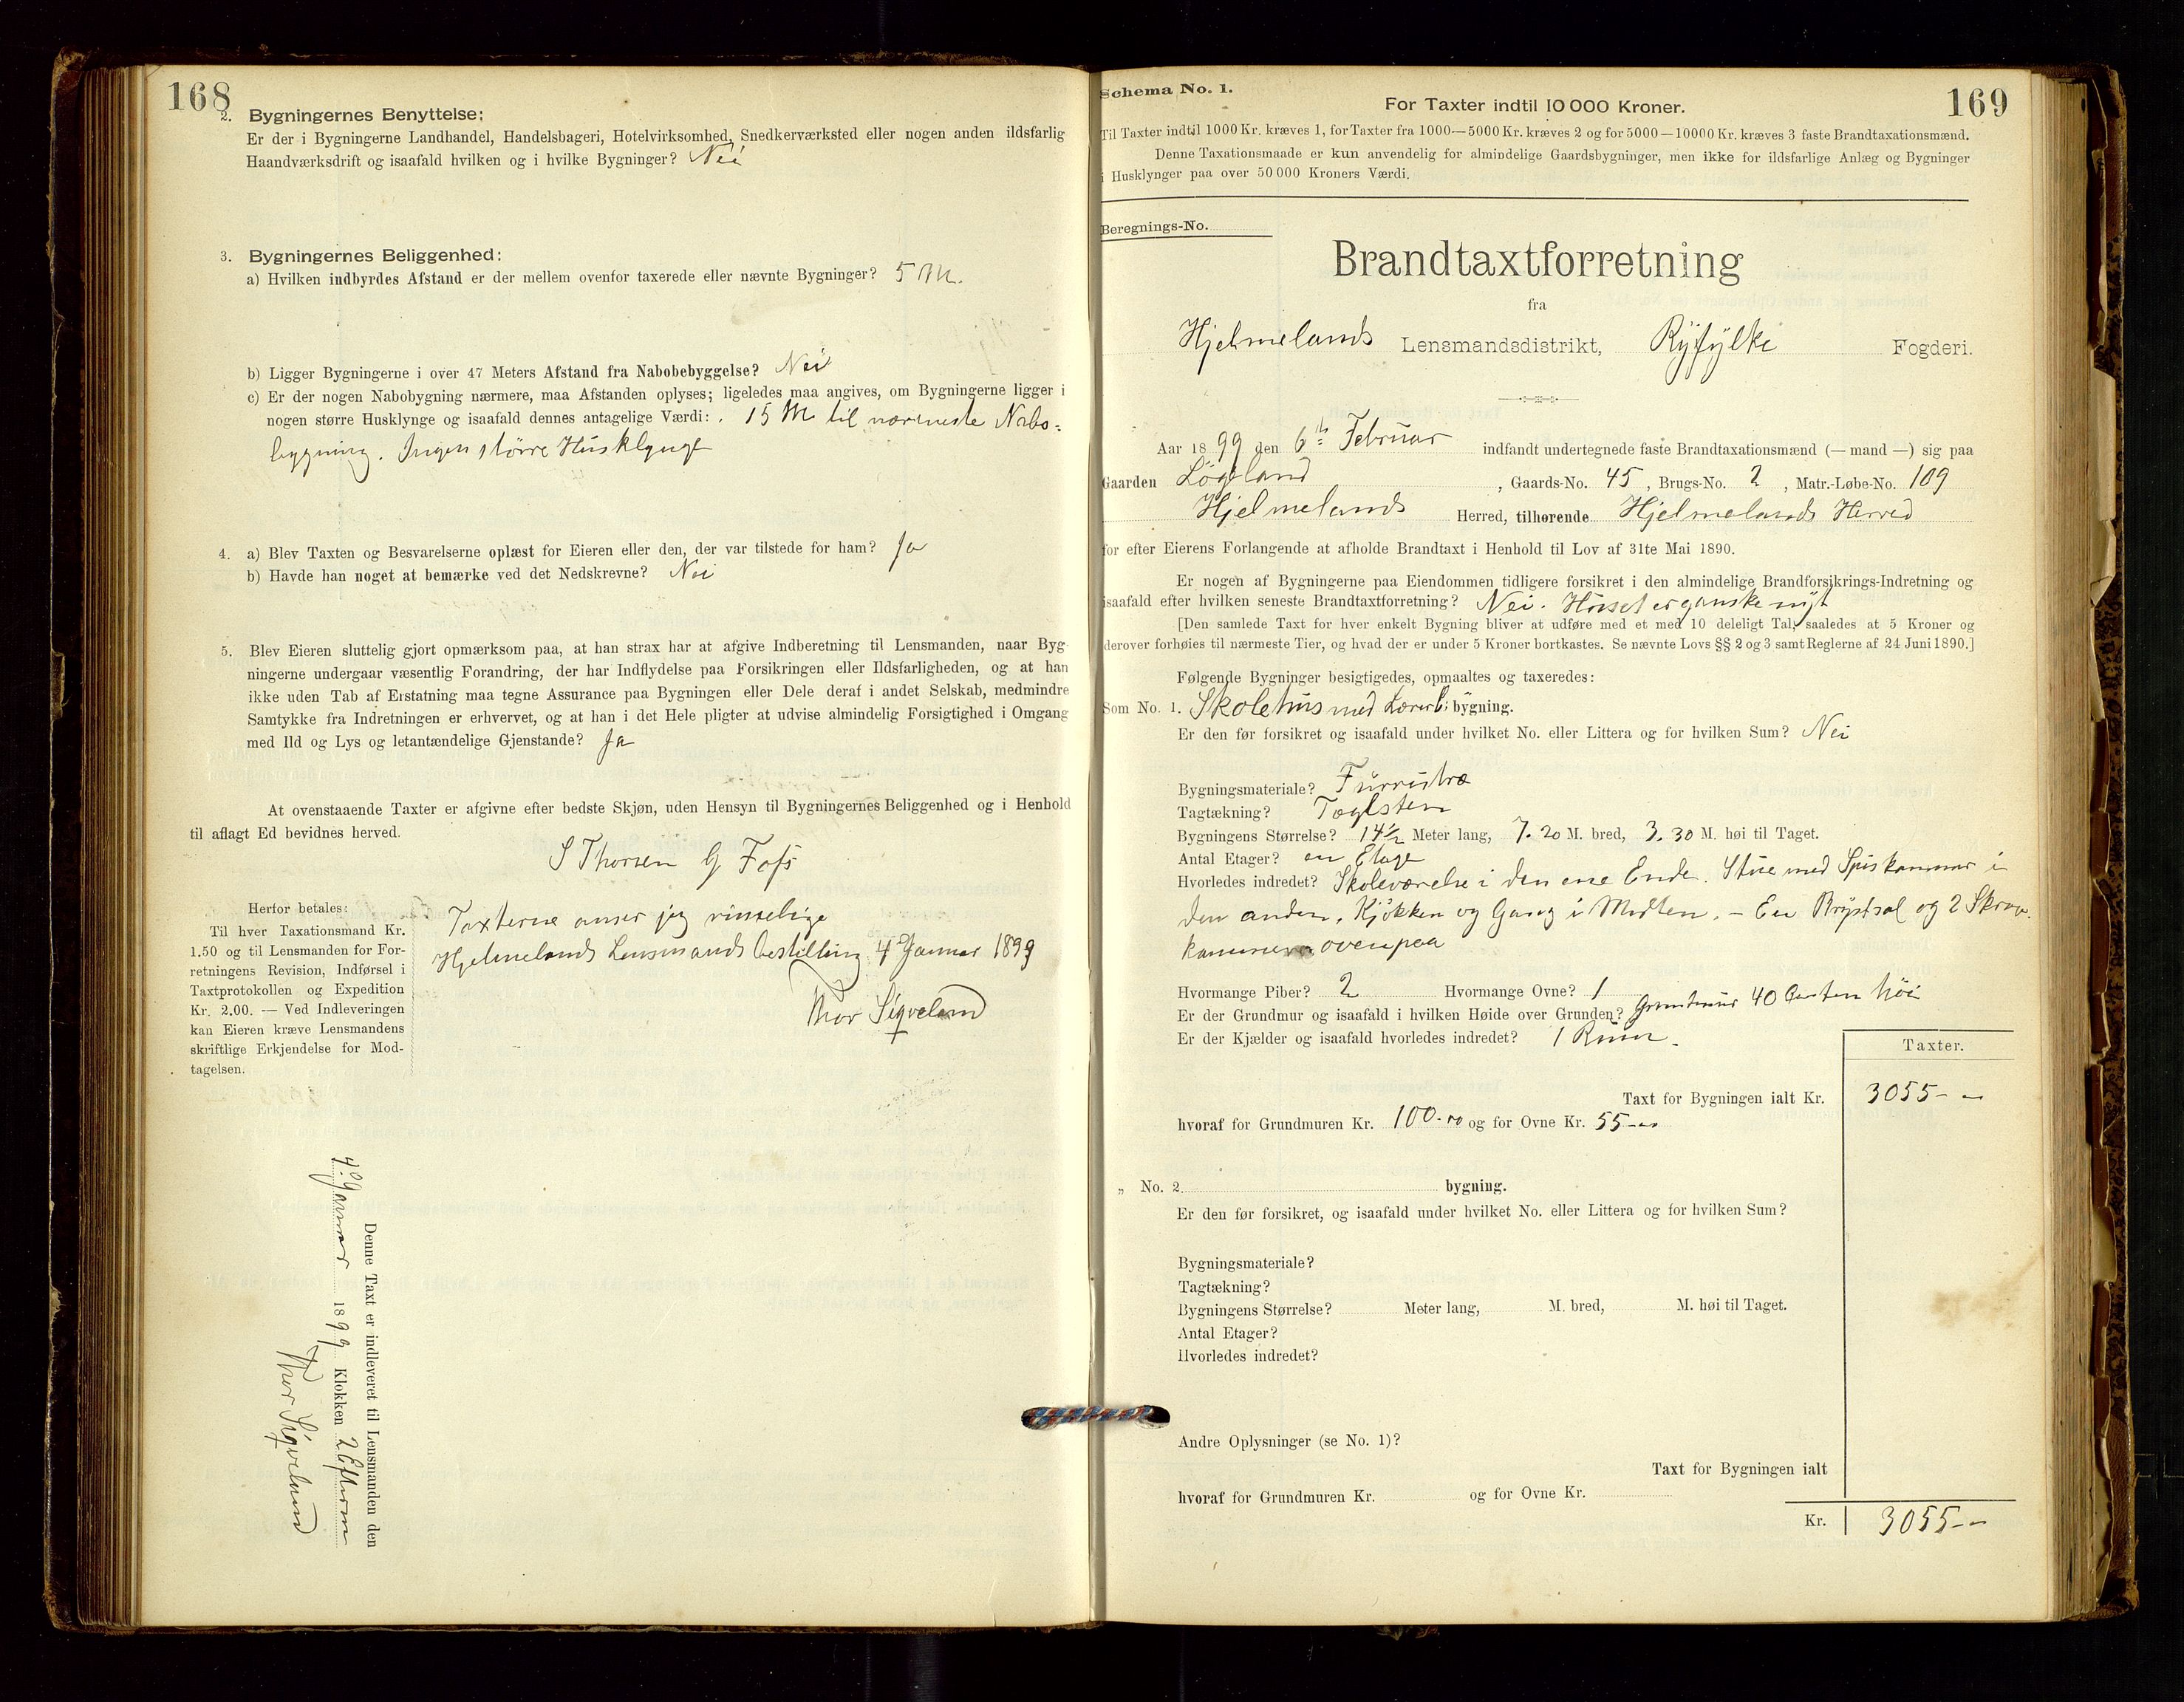 168
2. Bygningernes Benyttelse:
Er der i Bygningerne Landhandel, Handelsbageri, Hotelvirksomhed, Snedkerværksted eller nogen anden ildsfarlig
Haandværksdrift og isaafald hvilken og i hvilke Bygninger? Nei
3. Bygningernes Beliggenhed:
a) Hvilken indbyrdes Afstand er der mellem ovenfor taxerede eller nævnte Bygninger? 5 M.
b) Ligger Bygningerne i over 47 Meters Afstand fra Nabobebyggelse? Nei
c) Er der nogen Nabobygning nærmere, maa Afstanden oplyses; ligeledes maa angives, om Bygningerne ligger i
nogen større Husklynge og isaafald dennes antagelige Værdi: . 15 M til nærmeste Nabo-
bygning. Ingen större Husklynge
4. a) Blev Taxten og Besvarelserne oplæst for Eieren eller den, der var tilstede for ham? Ja
b) Havde han noget at bemærke ved det Nedskrevne? Nei
5. Blev Eieren sluttelig gjort opmærksom paa, at han strax har at afgive Indberetning til Lensmanden, naar Byg-
ningerne undergaar væsentlig Forandring, der har Indflydelse paa Forsikringen eller Ildsfarligheden, og at han
ikke uden Tab af Erstatning maa tegne Assurance paa Bygningen eller Dele deraf i andet Selskab, medmindre
Samtykke fra Indretningen er erhvervet, og at han i det Hele pligter at udvise almindelig Forsigtighed i Omgang
med Ild og Lys og letantændelige Gjenstande? Ja
At ovenstaaende Taxter er afgivne efter bedste Skjøn, uden Hensyn til Bygningernes Beliggenhed og i Henhold
til aflagt Ed bevidnes herved.
S Thorsen G Fofs
Herfor betales:
Til hver Taxationsmand Kr.
1.50 og til Lensmanden for For-
retningens Revision, Indførsel i
Taxtprotokollen og Expedition
Kr. 2.00. — Ved Indleveringen
kan Eieren kræve Lensmandens
skriftlige Erkjendelse for Mod-
tagelsen.
Taxterne anser jeg rimelige
Hjelmelands Lensmandsbestilling 4 Januar 1899
Thor Sigveland
Denne Taxt er indleveret til Lensmanden den
4 Januar 1899 Klokken 2 Efterm
Thor Sigveland
Schema No. 1.
169
For Taxter indtil 10 000 Kroner.
Til Taxter indtil 1000 Kr. kræves 1, for Taxter fra 1000—5000 Kr. kræves 2 og for 5000—10000 Kr. kræves 3 faste Brandtaxationsmænd.
Denne Taxationsmaade er kun anvendelig for almindelige Gaardsbygninger, men ikke for ildsfarlige Anlæg og Bygninger
i Husklynger paa over 50 000 Kroners Værdi.
Beregnings-No.
Brandtaxtforretning
fra
Hjelmelands Lensmandsdistrikt, Ryfylke Fogderi.
Aar 1899 den 6te Februar indfandt undertegnede faste Brandtaxationsmænd (— mand —) sig paa
Gaarden Lögeland, Gaards-No. 45, Brugs-No. 2, Matr.-Løbe-No. 109
Hjelmelands Herred, tilhørende Hjelmelands Herred
for efter Eierens Forlangende at afholde Brandtaxt i Henhold til Lov af 31te Mai 1890.
Er nogen af Bygningerne paa Eiendommen tidligere forsikret i den almindelige Brandforsikrings-Indretning og
isaafald efter hvilken seneste Brandtaxtforretning? Nei. Huset er ganske nyt
[Den samlede Taxt for hver enkelt Bygning bliver at udføre med et med 10 deleligt Tal, saaledes at 5 Kroner og
derover forhøies til nærmeste Tier, og hvad der er under 5 Kroner bortkastes. Se nævnte Lovs §§ 2 og 3 samt Reglerne af 24 Juni 1890.]
Følgende Bygninger besigtigedes, opmaaltes og taxeredes:
Som No. 1. Skolehus med Lærerb: bygning.
Er den før forsikret og isaafald under hvilket No. eller Littera og for hvilken Sum? Nei
Bygningsmateriale? Furrutræ
Tagtækning? Taglsten
Bygningens Størrelse? 14½ Meter lang, 7.20 M. bred, 3.30 M. høi til Taget.
Antal Etager? en Etage
Hvorledes indredet? Skoleværelse i den ene Ende. Stue med Spiskammer i
den anden, Kjökken og Gang i Midten. - En Brystsal og 2 Skraa-
kammere ovenpaa
Hvormange Piber? 2 Hvormange Ovne? 1
Er der Grundmur og isaafald i hvilken Høide over Grunden? Grundmur 40 höi
Er der Kjælder og isaafald hvorledes indredet? 1 Rum.
Taxter.
Taxt for Bygningen ialt Kr. 3055- -
hvoraf for Grundmuren Kr. 100.00 og for Ovne Kr. 55 -
„ No. 2. bygning.
Er den før forsikret, og isaafald under hvilket No. eller Littera og for hvilken Sum?
Bygningsmateriale?
Tagtækning?
Bygningens Størrelse? Meter lang, M. bred, M. høi til Taget.
Antal Etager?
Hvorledes indredet?
Andre Oplysninger (se No. 1)?
Taxt for Bygningen ialt
hvoraf for Grundmuren Kr. og for Ovne Kr.
Kr. 3055--